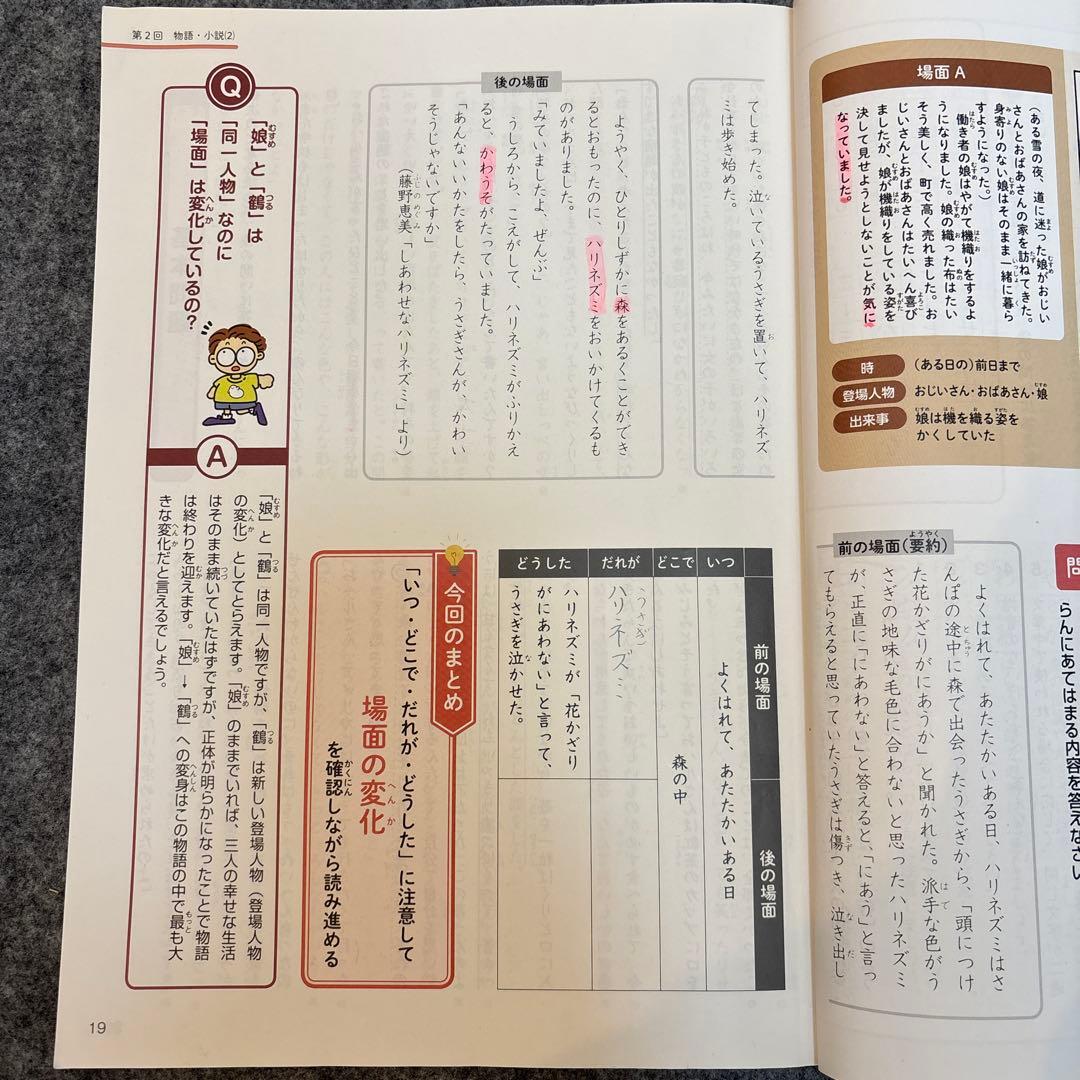 場面A
（ある雪の夜、道に迷った娘がおじい
さんとおばあさんの家を訪ねてきた。
身寄りのない娘はそのまま一緒に暮ら
すようになった。）
働き者の娘はやがて機織りをするよ
うになりました。娘の織った布はたい
そう美しく、町で高く売れました。お
じいさんとおばあさんはたいへん喜び
ましたが、娘が機織りをしている姿を
決して見せようとしないことが気に
なっていました。
時 （ある日の）前日まで
登場人物 おじいさん・おばあさん・娘
出来事 娘は機を織る姿を
かくしていた
問
らんにあてはまる内容を答えなさい
前の場面（要約）
よくはれて、あたたかいある日、ハリネズミはさ
んぽの途中に森で出会ったうさぎから、「頭につけ
た花かざりがにあうか」と聞かれた。派手な色がう
さぎの地味な毛色に合わないと思ったハリネズミ
が、正直に「にあわない」と答えると、「にあう」と言っ
てもらえると思っていたうさぎは傷つき、泣き出し
第2回 物語・小説(2)
てしまった。泣いているうさぎを置いて、ハリネズ
ミは歩き始めた。
後の場面
ようやく、ひとりしずかに森をあるくことができ
るとおもったのに、ハリネズミをおいかけてくるも
のがありました。
「みていましたよ、ぜんぶ」
うしろから、こえがして、ハリネズミがふりかえ
ると、かわうそがたっていました。
「あんないいかたをしたら、うさぎさんが、かわい
そうじゃないですか」
（藤野恵美「しあわせなハリネズミ」より）
前の場面
後の場面
いつ
よくはれて、あたたかいある日
どこで
森の中
だれが
（うさぎ）
ハリネズミ
どうした
ハリネズミが「花かざり
がにあわない」と言って、
うさぎを泣かせた。
今回のまとめ
「いつ・どこで・だれが・どうした」に注意して
場面の変化
を確認しながら読み進める
Q
「娘」と「鶴」は
「同一人物」なのに
「場面」は変化しているの？
A
「娘」と「鶴」は同一人物ですが、「鶴」は新しい登場人物（登場人物
の変化）としてとらえます。「娘」のままでいれば、三人の幸せな生活
はそのまま続いていたはずですが、正体が明らかになったことで物語
は終わりを迎えます。「娘」→「鶴」への変身はこの物語の中で最も大
きな変化だと言えるでしょう。
19